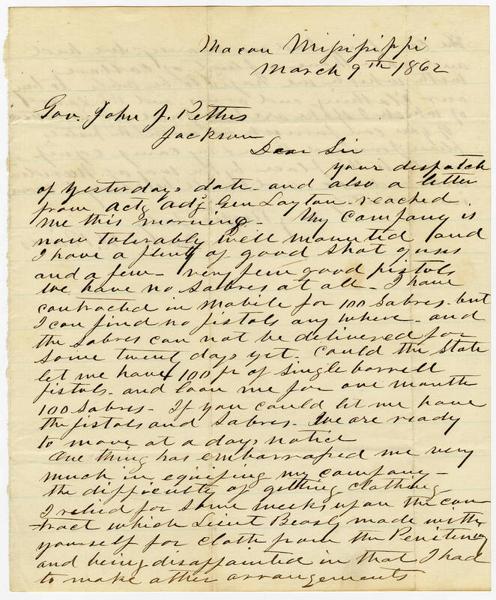 Macon Missippippi
March 9th 1862
Gov. John J. Pettus
Jackson
Dear Sir
your dispatch
of yesterdays date and also a letter
from actg adj Gen Layton reached
me this morning - My company is
now tolerably well mounted and
I have a plenty of good shot guns
and a few - very few good pistols
We have no Sabres at all - I have
contracted in Mobile for 100 Sabres. but
I can find no pistols any where - and
the sabres can not be delivered for
some twenty days yet. Could the State
let me have 100 pr of Single barrell
pistols. and loan me for one month
100 Sabres - If you could let me have
the pistols and Sabres. We are ready
to move at a days notice
One thing has embarrassed me very
much in equiping my company -
the difficulty of getting clothing
I relied for some weeks upon the con
-tract which Lieut Beasly made with
yourself for cloth from the Penitency
and being disappointed in that I had
to make other arrangements